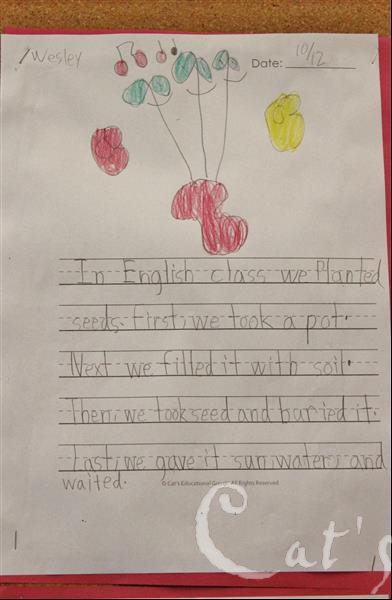 Wesley
Date: 10/12
In English class we Planted
seeds. First, we took a pot.
Next we filled it with soil.
Then, we took seed and buried it.
Last, we gave it sun, water, and
waited.
© Cat's Educational Group. All Rights Reserved
Cat's